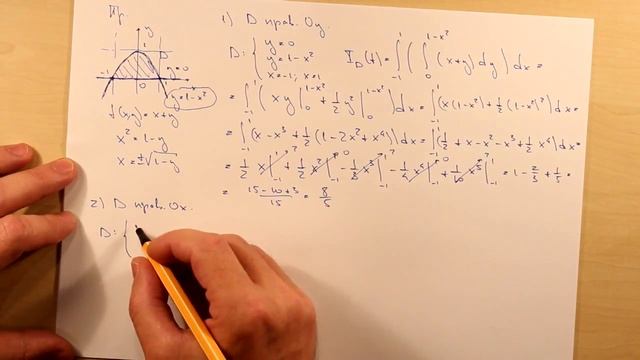 Пр.
y
1
-1
0
1
x
y=0
y=1-x²
f(x,y)=x+y
x²=1-y
x=±√(1-y)
1) D прав. Oy.
D: { y=0
y=1-x²
x=-1; x=1
I_D(f)=∫₋₁¹(∫₀^(1-x²)(x+y)dy)dx=
=∫₋₁¹(xy|₀^(1-x²)+½y²|₀^(1-x²))dx=∫₋₁¹(x(1-x²)+½(1-x²)²)dx=
=∫₋₁¹(x-x³+½(1-2x²+x⁴))dx=∫₋₁¹(½+x-x²-x³+½x⁴)dx=
=½x|₋₁¹+½x²|₋₁¹-⅓x³|₋₁¹-¼x⁴|₋₁¹+1/10x⁵|₋₁¹=1-2/3+1/5=
=(15-10+3)/15=8/5
2) D прав. Ox.
D: {